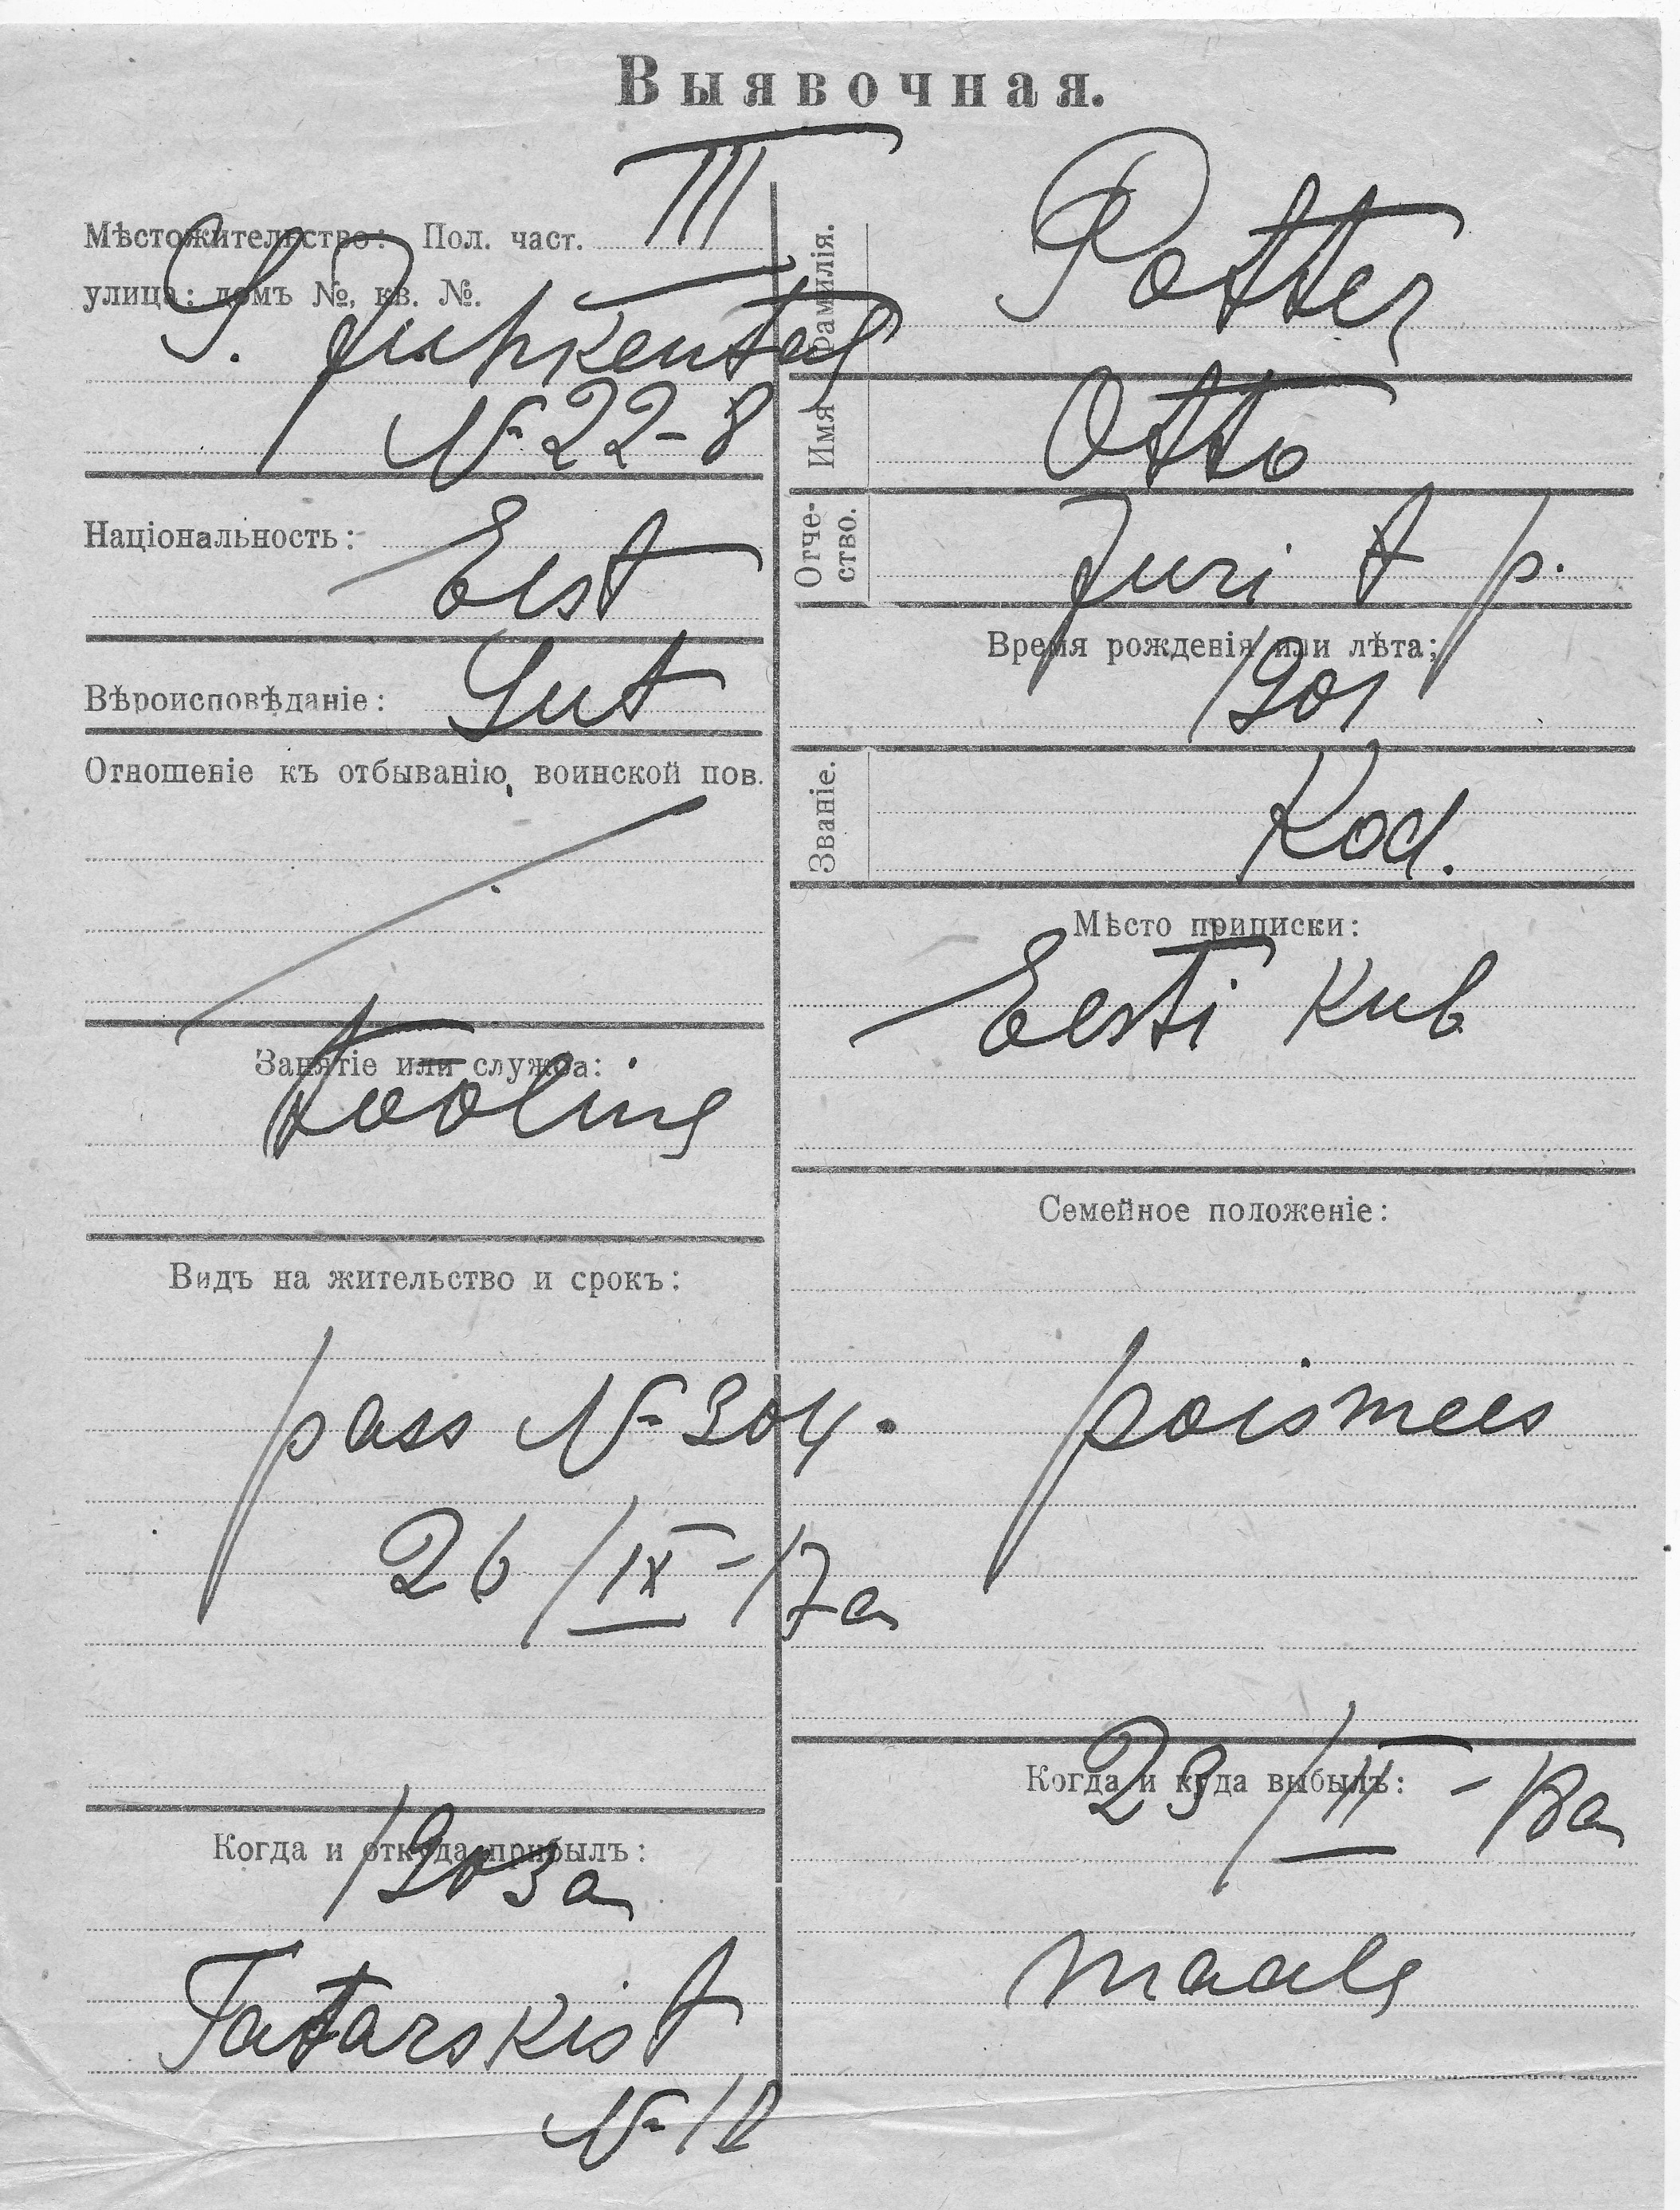 Выявочная.
Мѣстожительство: Пол. част. III
улица: домъ №, кв. №.
S. Juhkental
№ 22-8
Національность: Eest
Вѣроисповѣданіе: Lut
Отношеніе къ отбыванію воинской пов.
Занятіе или служба:
Kooling
Видъ на жительство и срокъ:
pass № 304.
26/IX-17a
Когда и откуда прибылъ:
1903a
Tatarskist
№ 12
Фамилія. Potter
Имя Otto
Отче-
ство. Juri t p.
Время рожденія или лѣта;
1901
Званіе. Kod.
Мѣсто приписки:
Eesti kub
Семейное положеніе:
poismees
Когда и куда выбылъ:
23/II-18a
maale